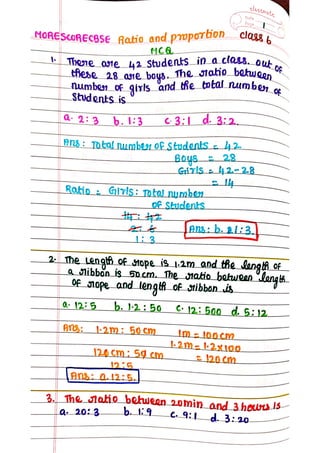 classmate
Date
Page 1
MORESCORECBSE Ratio and proportion class 6
MCQ
1. There are 42 students in a class. out of
these 28 are boys. The ratio between
number of girls and the total number of
Students is
a. 2:3 b. 1:3 c. 3:1 d. 3:2.
Ans: Total number of Students = 42
Boys = 28
Girls = 42-28
= 14
Ratio = Girls: Total number
of Students
14 : 42
2 : 6
1 : 3
Ans: b. 1:3.
2. The Length of rope is 1.2m and the length of
a ribbon is 50cm. The ratio between length
of rope and length of ribbon is
a. 12:5 b. 1.2:50 c. 12:500 d. 5:12
Ans: 1.2m : 50cm 1m = 100cm
1.2m = 1.2x100
120cm : 50cm = 120cm
12:5
Ans: a. 12:5.
3. The ratio between 20min and 3 hours is
a. 20:3 b. 1:9 c. 9:1 d. 3:20